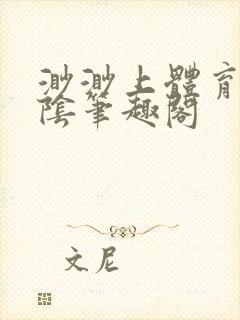 渺渺上體育
陰筆趣閣
文尼